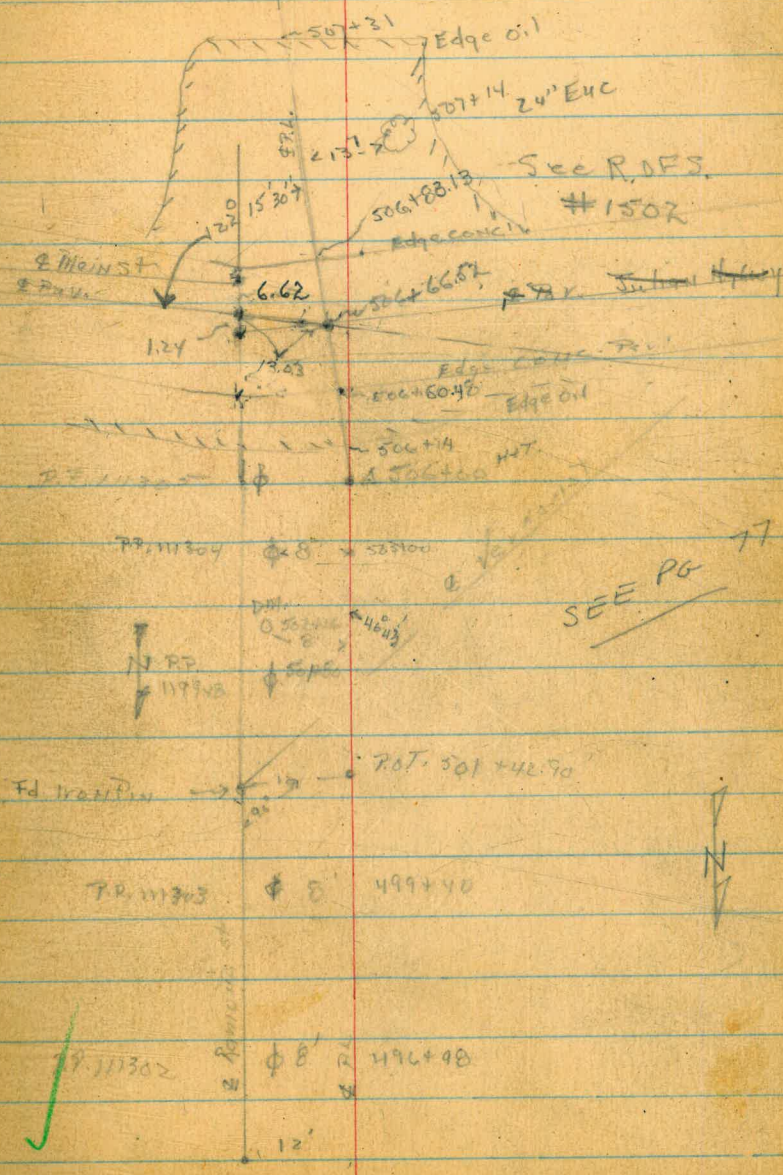 507+31 Edge Oil
507+14 24" Euc
℄ P.L.
<13'->
See R.D.F.S.
#1502
122° 15'30"±
506+83.13
Edge conc.
℄ Main St
℄ Pav.
6.62
506+66.52
℄ Pav. Julian Hghwy
1.24
13.03
Edge Conc. Pav.
506+60.48
Edge Oil
506+14
P.P. 111305
Δ 506+00
P.P. 111304 8' 505+00
℄
SEE PG 77
46°43'
8'
N
P.P.
P.O.T. 501+42.90
Fd. Iron Pin
N
P.P. 111303 8' 499+40
P.P. 111302 8' 496+98
℄
12'